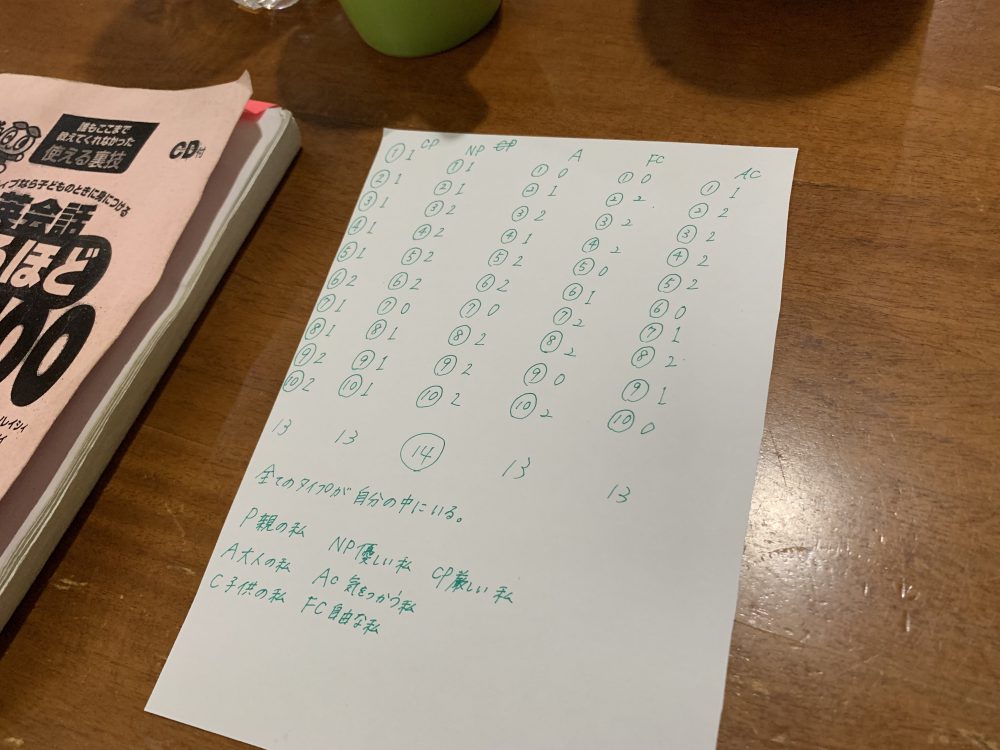 誰もここまで
教えてくれなかった
使える裏技
CD付
イブなら子どものときに身につける
英会話
るほど
00
CP NP A FC AC
① 1 ① 1 ① 0 ① 0 ① 1
② 1 ② 1 ② 1 ② 2 ② 2
③ 1 ③ 2 ③ 2 ③ 2 ③ 2
④ 1 ④ 2 ④ 1 ④ 2 ④ 2
⑤ 1 ⑤ 2 ⑤ 2 ⑤ 0 ⑤ 2
⑥ 2 ⑥ 2 ⑥ 2 ⑥ 1 ⑥ 0
⑦ 1 ⑦ 0 ⑦ 0 ⑦ 2 ⑦ 1
⑧ 1 ⑧ 1 ⑧ 2 ⑧ 2 ⑧ 2
⑨ 2 ⑨ 1 ⑨ 2 ⑨ 0 ⑨ 1
⑩ 2 ⑩ 1 ⑩ 2 ⑩ 2 ⑩ 0
13 13 14 13 13
全てのタイプが自分の中にいる。
P 親の私 NP 優しい私 CP 厳しい私
A 大人の私 AC 気をつかう私
C 子供の私 FC 自由な私